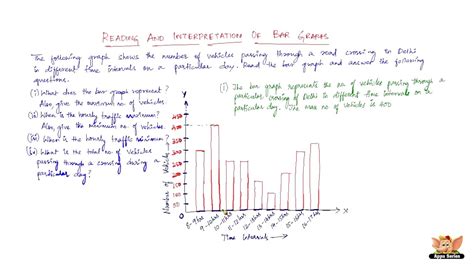 READING AND INTERPRETATION OF BAR GRAPHS
The following graph shows the number of vehicles passing through a road crossing in Delhi
in different time intervals on a particular day. Read the bar graph and answer the following
questions.
(i) What does the bar graph represent?
Also, give the maximum no of vehicles.
(ii) When is the hourly traffic maximum?
Also, give the minimum no of vehicles.
(iii) When is the hourly traffic minimum?
(iv) What is the total no of vehicles
passing through a crossing during a
particular day?
(i) The bar graph represents the no of vehicles passing through a
particular crossing of Delhi in different time intervals on the
particular day. no of vehicles is 
Y
450
400
350
300
250
200
150
100
50
Number of Vehicles
8-9hrs
9-10hrs
X
Time intervals
Appu Series